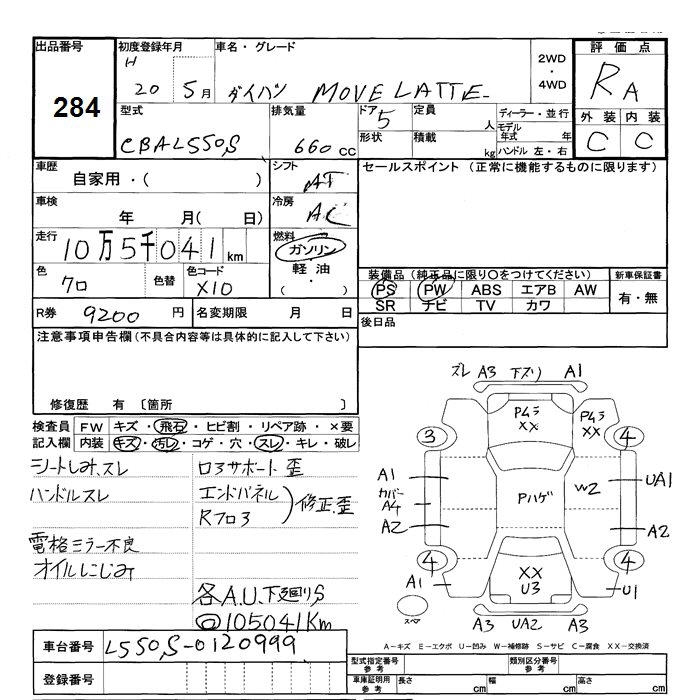 出品番号 初度登録年月 車名・グレード 2WD・4WD 評価点
284 H 20 5月 ダイハツ MOVE LATTE RA
型式 排気量 ドア 定員 ディーラー・並行 外装 内装
CBAL550S 660cc 5 人 モデル年式 年 C C
形状 積載 kg ハンドル 左・右
車歴 シフト セールスポイント (正常に機能するものに限ります)
自家用・( ) AT
車検 冷房
年 月( 日) AC
走行 燃料
10万5千041km ガソリン
色 色替 色コード 軽油 装備品 (純正品に限り○をつけてください) 新車保証書
クロ X10 ( ・ ) PS PW ABS エアB AW 有・無
SR ナビ TV カワ
R券 9200円 名変期限 月 日 後日品
注意事項申告欄 (不具合内容等は具体的に記入して下さい)
修復歴 有 〔箇所 〕
検査員 FW キズ・飛石・ヒビ割・リペア跡・×要
記入欄 内装 キズ・汚レ・コゲ・穴・スレ・キレ・破レ
シートしみ、スレ
ハンドルスレ
電格ミラー不良
オイルにじみ
コアサポート歪
エンドパネル
Rフロア
修正、歪
各A.U.下廻りS
@105041Km
ズレ A3 下ズリ A1
P4ㇻ XX P4ㇻ XX
3 4
A1 UA1
カバー A4 Pハゲ W2
A2 A2
4 4
A1 XX U3 U1
スペア A3 UA2 A3
A-キズ E-エクボ U-凹み W-補修跡 S-サビ C-腐食 XX-交換済
車台番号 L550S-0120999
登録番号
型式指定番号 参考 類別区分番号 参考
車庫証明用 参考 長さ cm 幅 cm 高さ cm